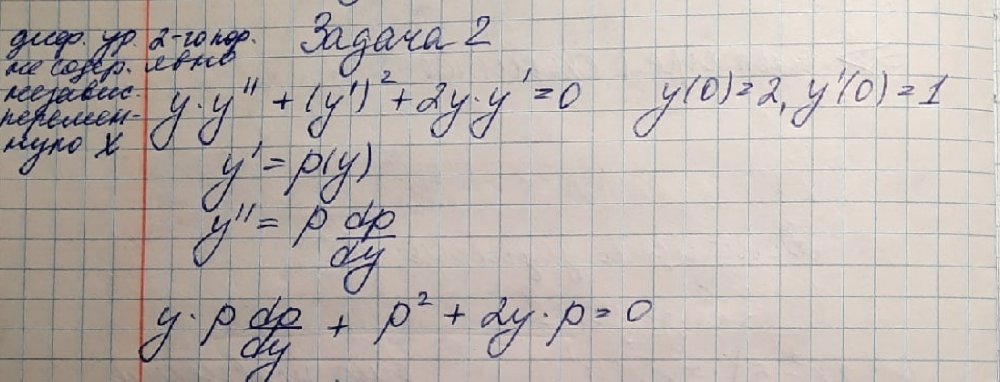 Задача 2
диф. ур. 2-го пор.
не содер. явно
независ.
перемен-
ную x
y·y'' + (y')² + 2y·y' = 0 y(0) = 2, y'(0) = 1
y' = p(y)
y'' = p dp/dy
y·p dp/dy + p² + 2y·p = 0